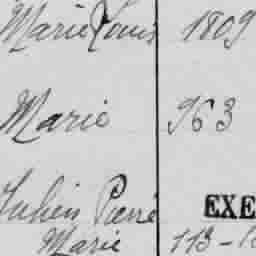 Marie Louis 1809
Marie 963
Julien Pierre EXE
Marie 113-